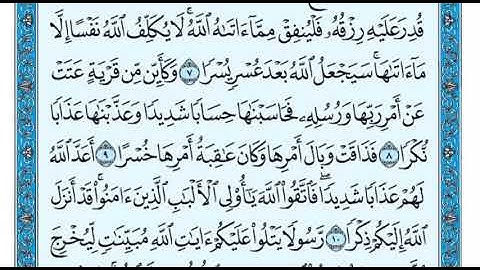 قُدِرَ عَلَيْهِ رِزْقُهُۥ فَلْيُنفِقْ مِمَّآ ءَاتَىٰهُ ٱللَّهُ ۚ لَا يُكَلِّفُ ٱللَّهُ نَفْسًا إِلَّا
مَآ ءَاتَىٰهَا ۚ سَيَجْعَلُ ٱللَّهُ بَعْدَ عُسْرٍ يُسْرًا ٧ وَكَأَيِّن مِّن قَرْيَةٍ عَتَتْ
عَنْ أَمْرِ رَبِّهَا وَرُسُلِهِۦ فَحَاسَبْنَٰهَا حِسَابًا شَدِيدًا وَعَذَّبْنَٰهَا عَذَابًا
نُّكْرًا ٨ فَذَاقَتْ وَبَالَ أَمْرِهَا وَكَانَ عَٰقِبَةُ أَمْرِهَا خُسْرًا ٩ أَعَدَّ ٱللَّهُ
لَهُمْ عَذَابًا شَدِيدًا ۖ فَٱتَّقُوا۟ ٱللَّهَ يَٰٓأُو۟لِى ٱلْأَلْبَٰبِ ٱلَّذِينَ ءَامَنُوا۟ ۚ قَدْ أَنزَلَ
ٱللَّهُ إِلَيْكُمْ ذِكْرًا ١٠ رَّسُولًا يَتْلُوا۟ عَلَيْكُمْ ءَايَٰتِ ٱللَّهِ مُبَيِّنَٰتٍ لِّيُخْرِجَ